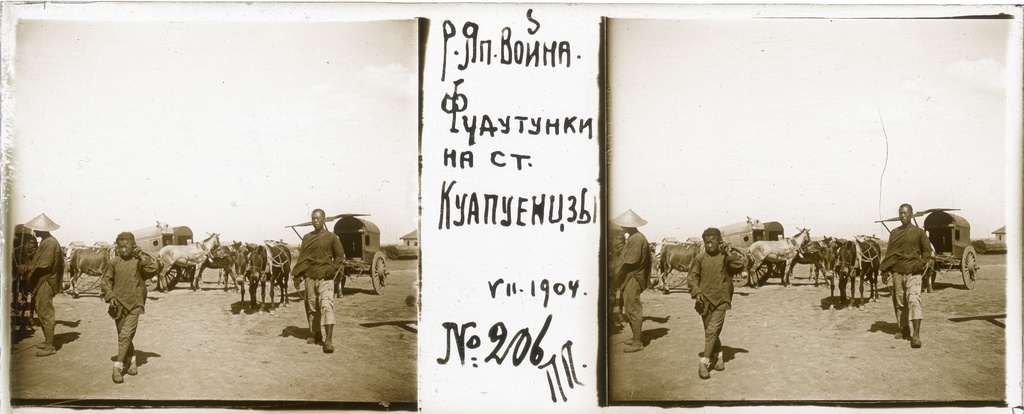 Р. Яп. Война.
Фудутунки
на ст.
Куапуенцзы
VII. 1904.
№ 206
ПП.